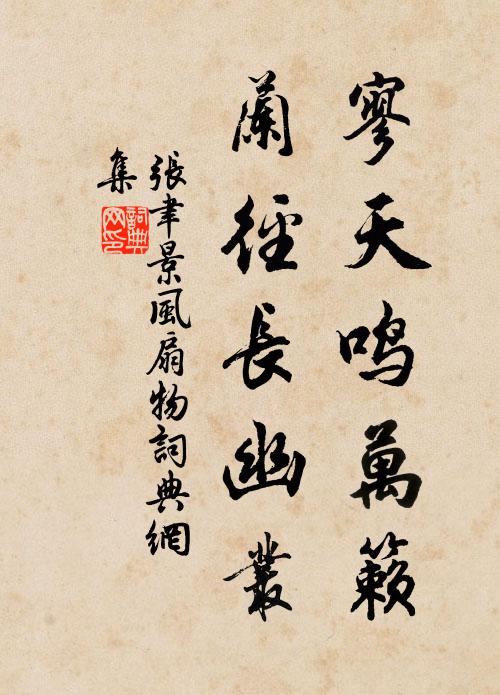 寥天鸣萬籟
蘭徑長幽叢
張聿景風扇物詞典網
集
詞典
网印